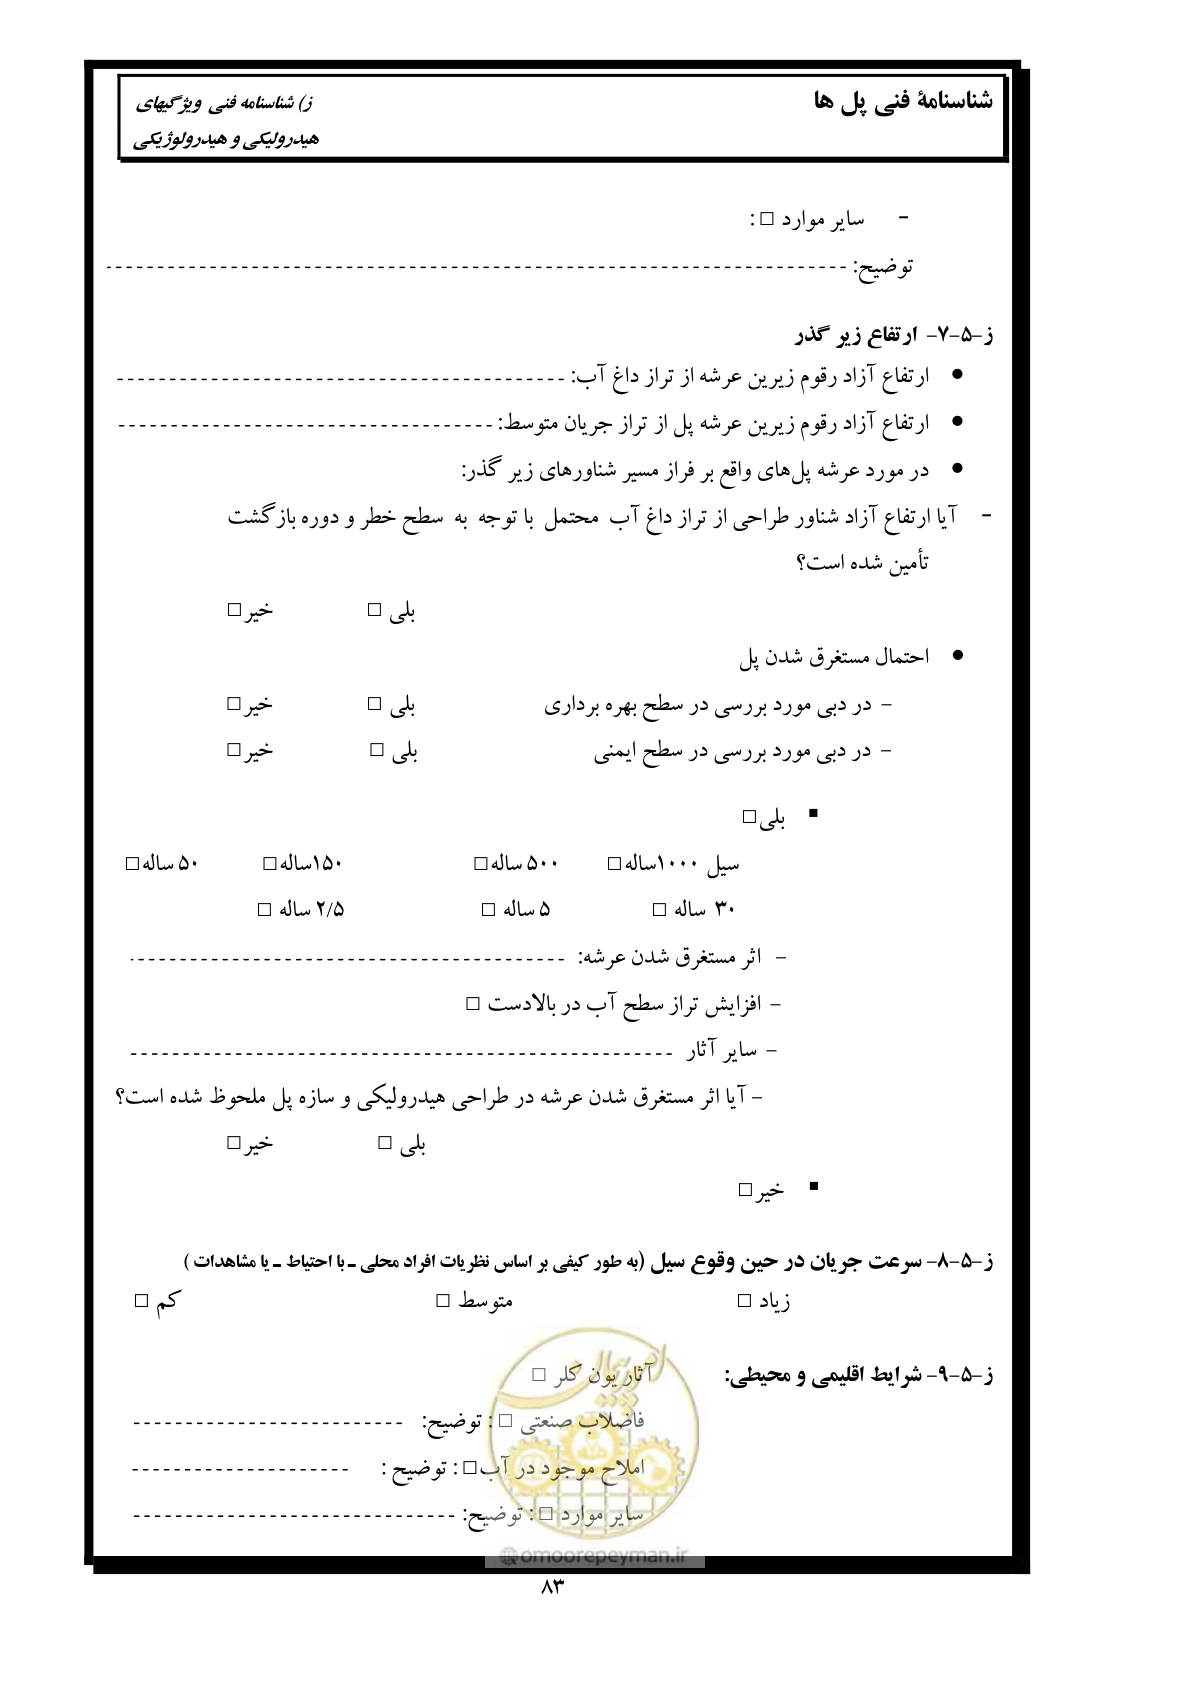 شناسنامهٔ فنی پل ها
ز) شناسنامه فنی ویژگیهای
هیدرولیکی و هیدرولوژیکی
- سایر موارد □ :
توضیح: ----------------------------------------------------------------------
ز-۵-۷- ارتفاع زیر گذر
● ارتفاع آزاد رقوم زیرین عرشه از تراز داغ آب: -------------------------------------------
● ارتفاع آزاد رقوم زیرین عرشه پل از تراز جریان متوسط: ------------------------------------
● در مورد عرشه پل‌های واقع بر فراز مسیر شناورهای زیر گذر:
- آیا ارتفاع آزاد شناور طراحی از تراز داغ آب محتمل با توجه به سطح خطر و دوره بازگشت
تأمین شده است؟
بلی □ خیر□
● احتمال مستغرق شدن پل
– در دبی مورد بررسی در سطح بهره برداری بلی □ خیر□
– در دبی مورد بررسی در سطح ایمنی بلی □ خیر□
▪ بلی□
سیل ۱۰۰۰ساله□ ۵۰۰ ساله□ ۱۵۰ساله□ ۵۰ ساله□
۳۰ ساله □ ۵ ساله □ ۲/۵ ساله □
– اثر مستغرق شدن عرشه: -----------------------------------------
– افزایش تراز سطح آب در بالادست □
– سایر آثار ----------------------------------------------------
– آیا اثر مستغرق شدن عرشه در طراحی هیدرولیکی و سازه پل ملحوظ شده است؟
بلی □ خیر□
▪ خیر□
ز-۵-۸- سرعت جریان در حین وقوع سیل (به طور کیفی بر اساس نظریات افراد محلی ـ با احتیاط ـ یا مشاهدات )
زیاد □ متوسط □ کم □
ز-۵-۹- شرایط اقلیمی و محیطی: آثار یون کلر □
فاضلاب صنعتی □ : توضیح: --------------------------
املاح موجود در آب□ : توضیح : ---------------------
سایر موارد □ : توضیح: -------------------------------
امور پیمان
@omoorepeyman.ir
۸۳